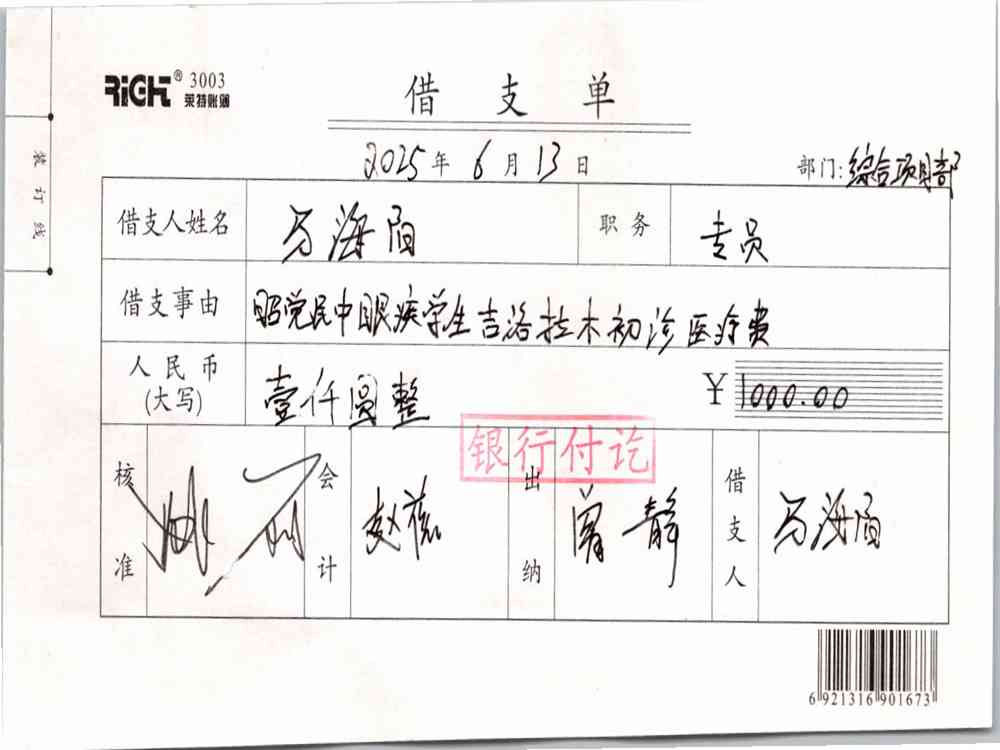 RiGHT® 3003
莱特账簿
借支单
2025年6月13日 部门:综合项目部
装订线
借支人姓名 马海阳 职务 专员
借支事由 昭觉民中眼疾学生吉洛拉木初诊医疗费
人民币(大写) 壹仟圆整 ¥1000.00
银行付讫
核准 会计 赵蓓 出纳 曾静 借支人 马海阳
6 921316 901673